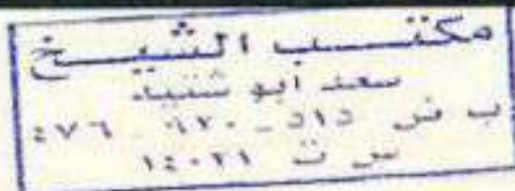 مكتب الشيخ
سعد ابو شنيد
ب ض ٥١٥ - ٦٧٠ - ٤٧٦
س ت ١٤٠٢١